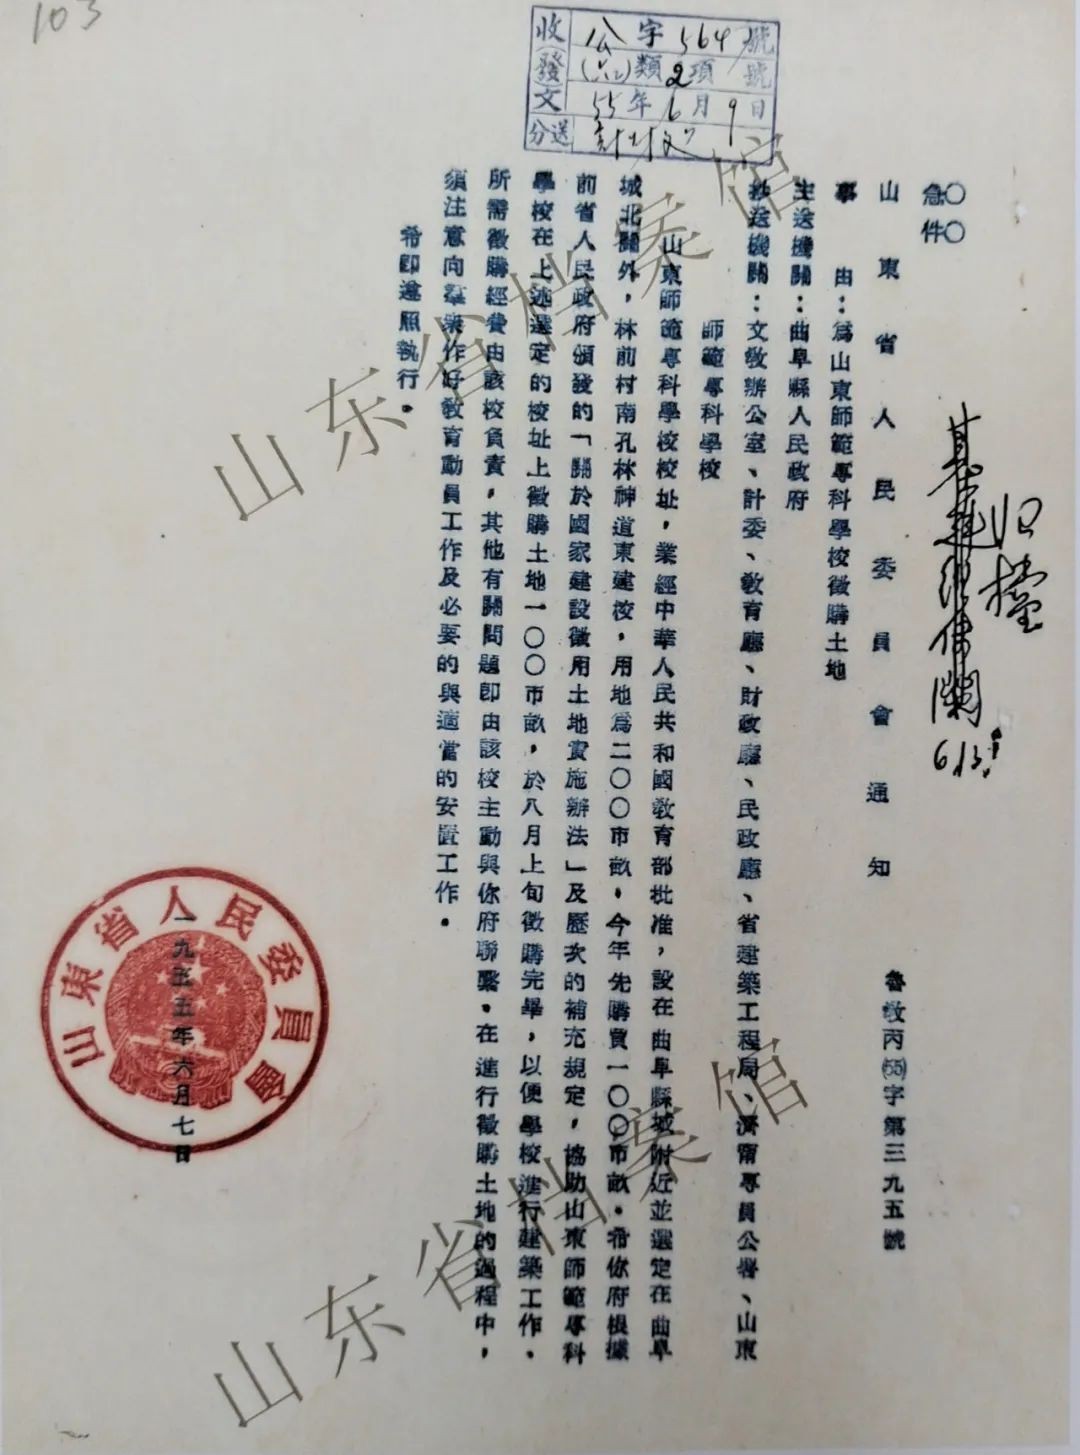 103
收發文 公字564號
(六)類2項 號
55年6月9日
分送
急件
山東省人民委員會通知
魯教丙(55)字第三九五號
事由：為山東師範專科學校徵購土地
主送機關：曲阜縣人民政府
抄送機關：文教辦公室、計委、教育廳、財政廳、民政廳、省建築工程局、濟甯專員公署、山東
師範專科學校
山東師範專科學校校址，業經中華人民共和國教育部批准，設在曲阜縣城附近並選定在曲阜
城北關外，林前村南孔林神道東建校，用地為二〇〇市畝，今年先購買一〇〇市畝。希你府根據
前省人民政府頒發的「關於國家建設徵用土地實施辦法」及歷次的補充規定，協助山東師範專科
學校在上述選定的校址上徵購土地一〇〇市畝，於八月上旬徵購完畢，以便學校進行建築工作。
所需徵購經費由該校負責，其他有關問題卽由該校主動與你府聯繫。在進行徵購土地的過程中，
須注意向羣衆作好教育動員工作及必要的與適當的安置工作。
希卽遵照執行。
歸檔
6.13
山東省人民委員會
一九五五年六月七日
山东省档案馆
山东省档案馆